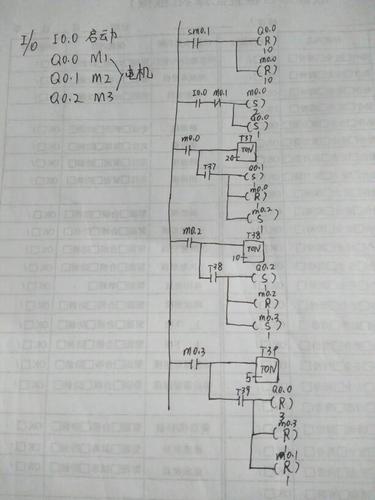 I/O I0.0 启动
Q0.0 M1
Q0.1 M2 电机
Q0.2 M3
SM0.1 Q0.0
(R)
10
M0.0
(R)
10
I0.0 M0.1 M0.0
(S)
2
Q0.0
(S)
1
M0.0 T37
20 TON
T37 Q0.1
(S)
1
M0.0
(R)
1
M0.2
(S)
1
M0.2 T38
10 TON
T38 Q0.2
(S)
1
M0.2
(R)
1
M0.3
(S)
1
M0.3 T39
5 TON
T39 Q0.0
(R)
3
M0.3
(R)
1
M0.1
(R)
1